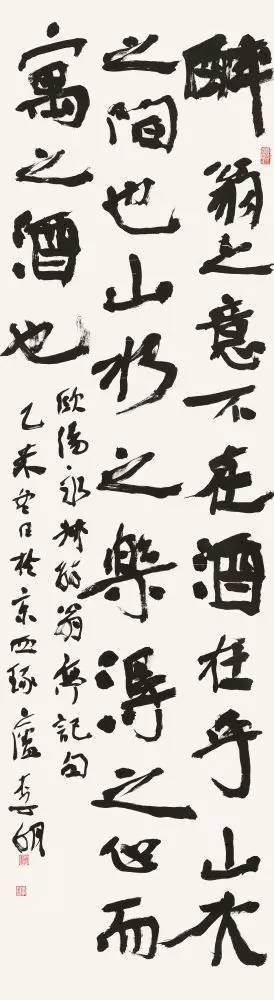 醉翁之意不在酒在乎山水
之間也山水之樂得之心而
寓之酒也
歐陽永叔醉翁亭記句
乙未冬日於京西琢廬李明